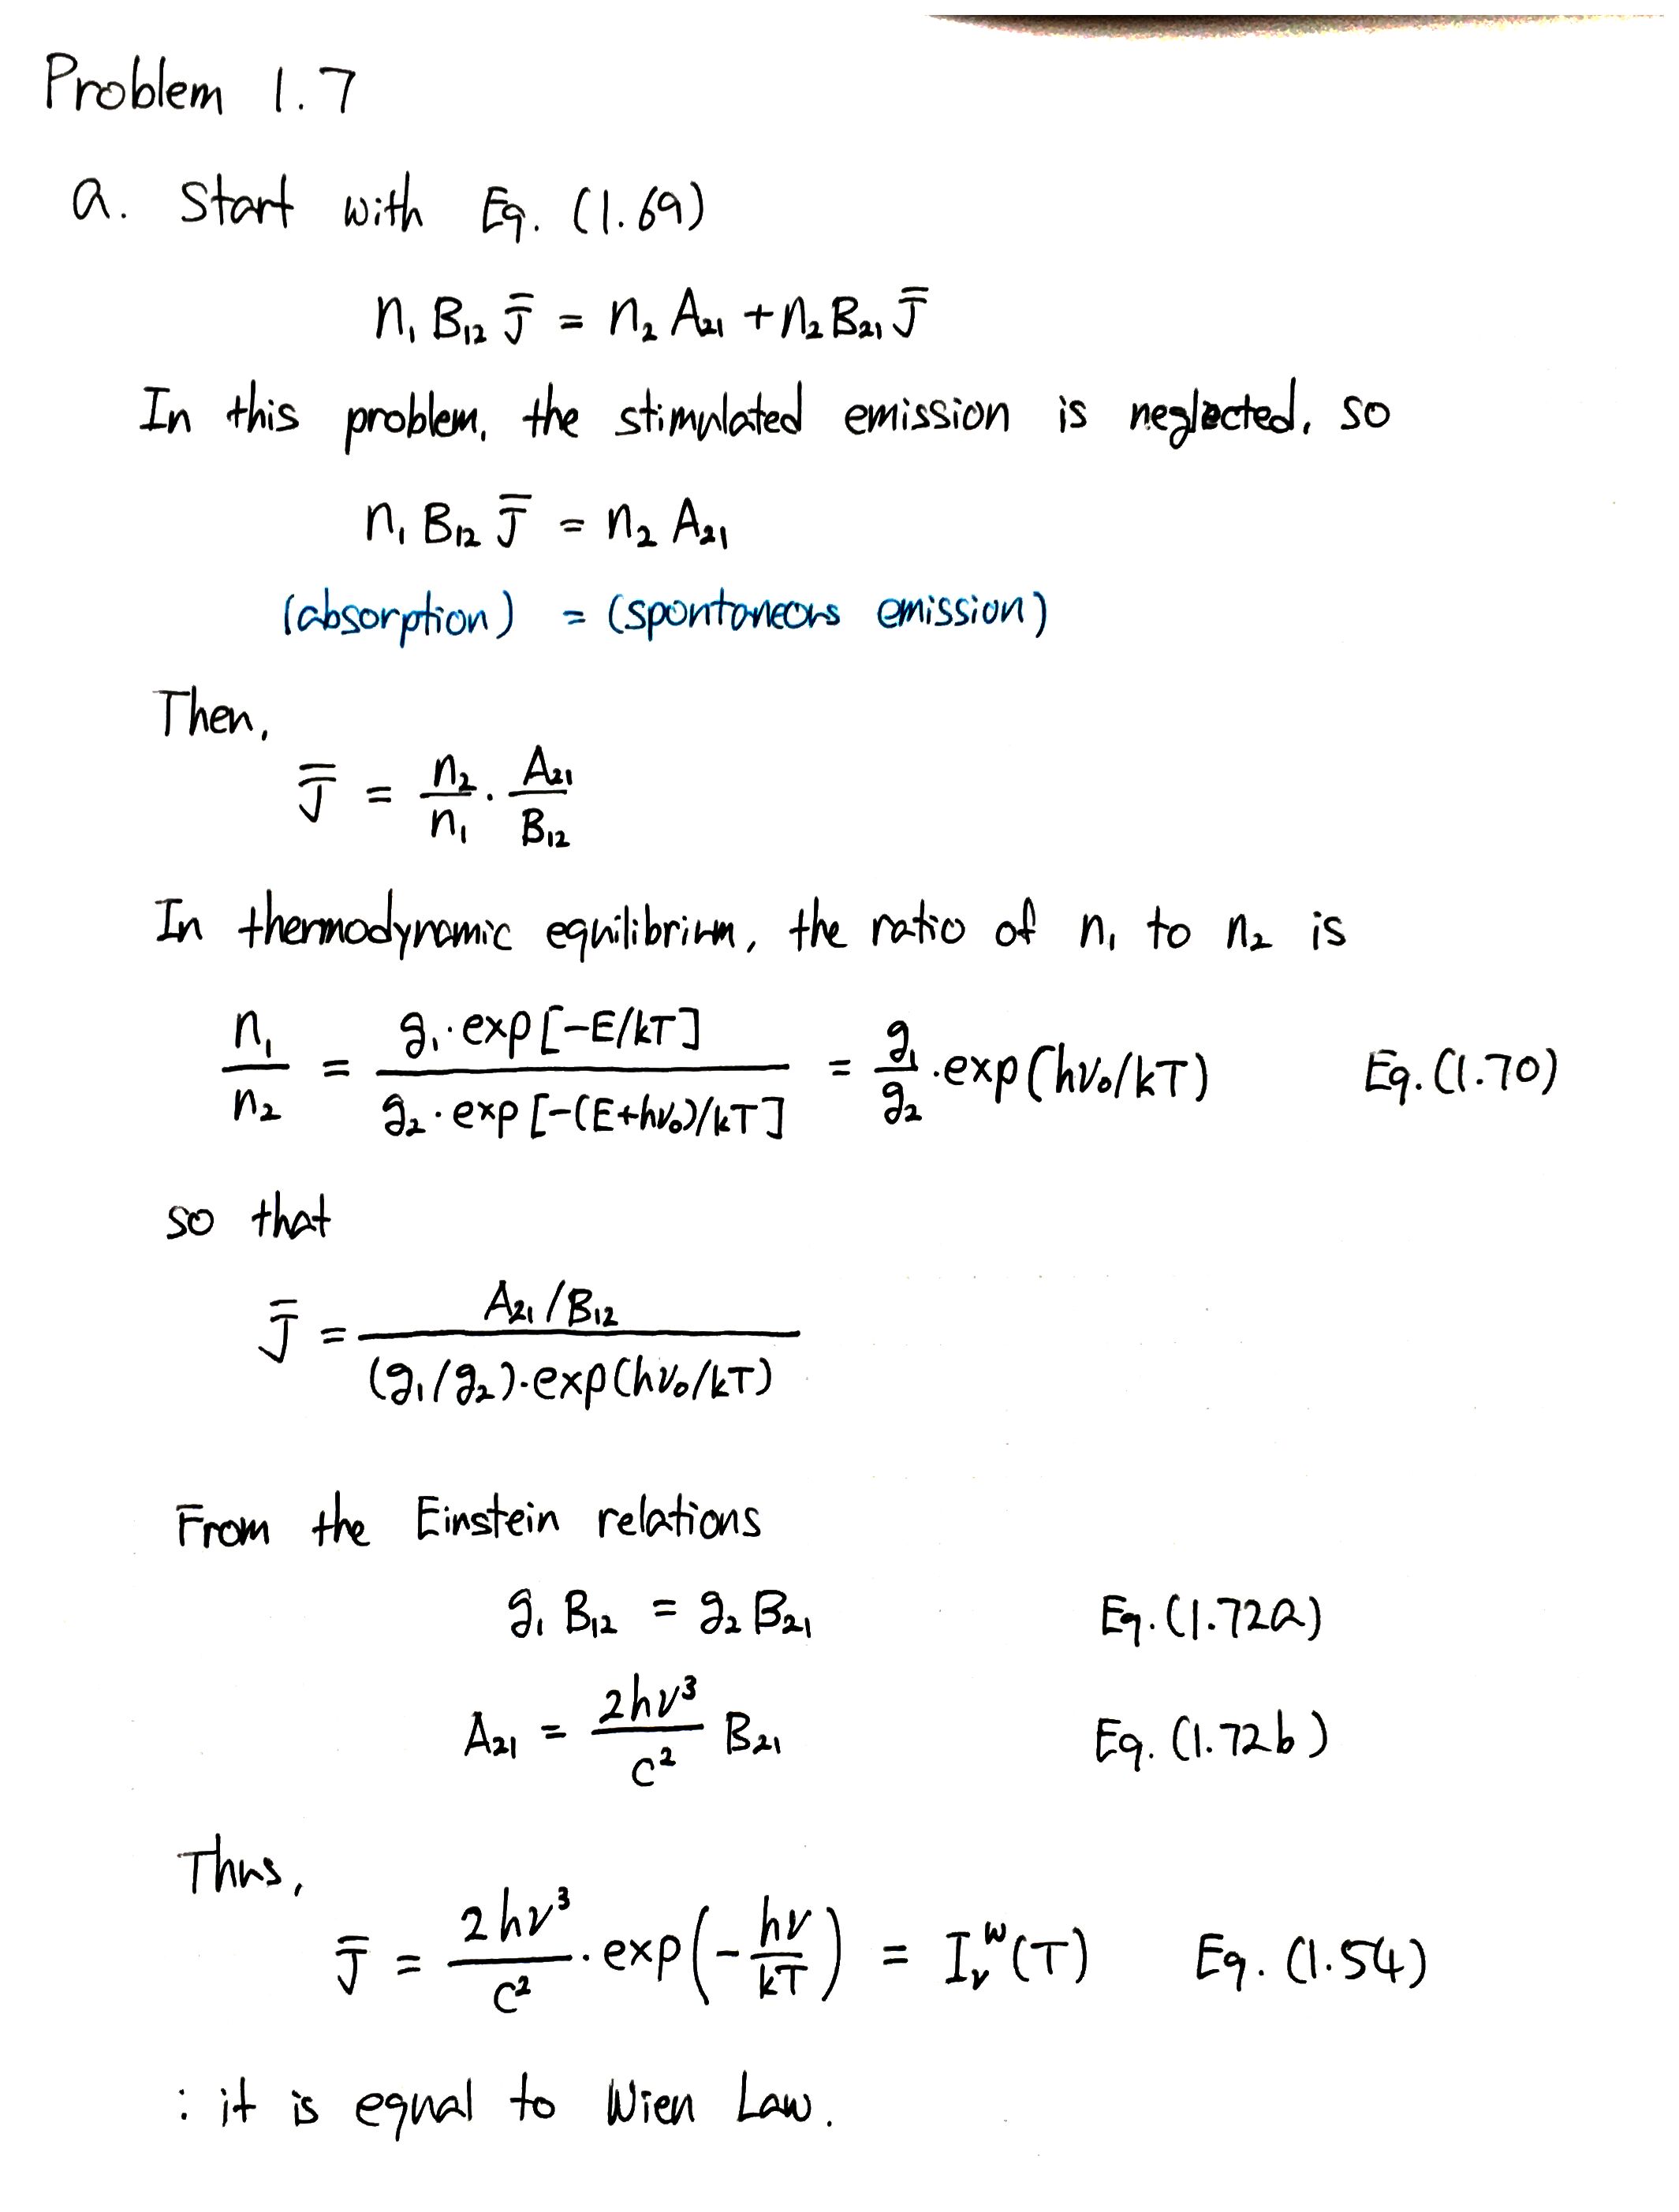 Problem 1.7
a. Start with Eq. (1.69)
n₁ B₁₂ J̄ = n₂ A₂₁ + n₂ B₂₁ J̄
In this problem, the stimulated emission is neglected, so
n₁ B₁₂ J̄ = n₂ A₂₁
(absorption) = (spontaneous emission)
Then,
J̄ = n₂/n₁ · A₂₁/B₁₂
In thermodynamic equilibrium, the ratio of n₁ to n₂ is
n₁/n₂ = g₁·exp[-E/kT] / g₂·exp[-(E+hν₀)/kT] = g₁/g₂ ·exp(hν₀/kT) Eq.(1.70)
so that
J̄ = A₂₁/B₁₂ / (g₁/g₂)·exp(hν₀/kT)
From the Einstein relations
g₁ B₁₂ = g₂ B₂₁ Eq.(1.72a)
A₂₁ = 2hν³/c² B₂₁ Eq. (1.72b)
Thus,
J̄ = 2hν³/c² ·exp(-hν/kT) = Iᵥᵂ(T) Eq. (1.54)
: it is equal to Wien Law.